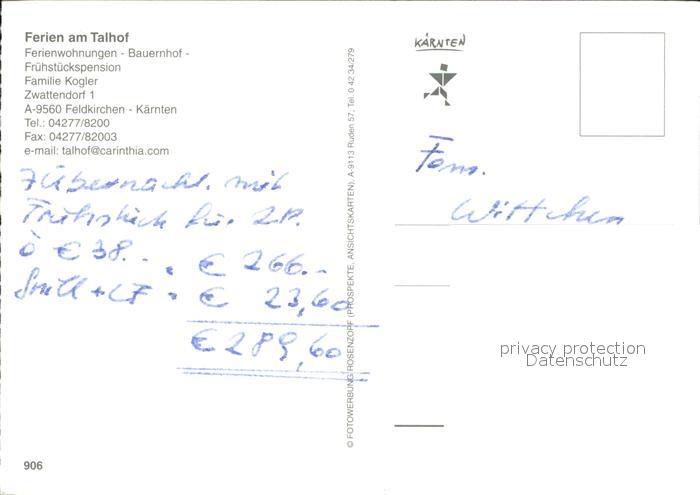 Ferien am Talhof
Ferienwohnungen - Bauernhof -
Frühstückspension
Familie Kogler
Zwattendorf 1
A-9560 Feldkirchen - Kärnten
Tel.: 04277/8200
Fax: 04277/82003
e-mail: talhof@carinthia.com
7 Übernacht. mit
Frühstück für 2 P.
à € 38.-
= € 266.-
+ = € 23,60
€ 289,60
906
© FOTOWERBUNG ROSENZOPF (PROSPEKTE, ANSICHTSKARTEN), A-9113 Ruden 57, Tel. 0 42 34/279
KÄRNTEN
Fam.
Wittchen
privacy protection
Datenschutz